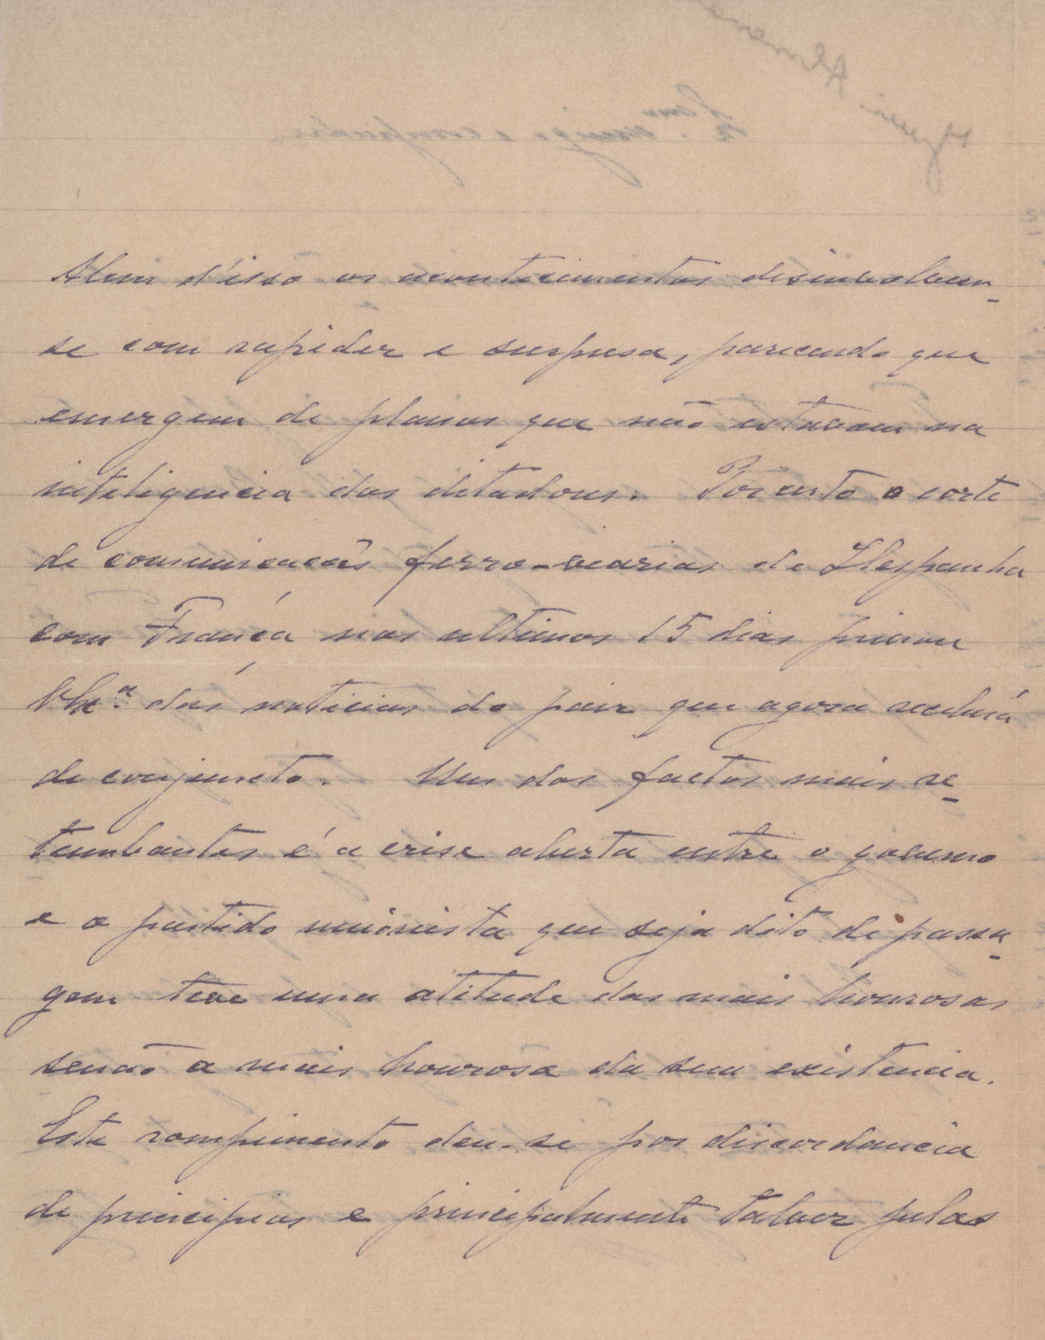 Alem d'isso os acontecimentos desimvolvem-
se com rapidez e surpresa, parecendo que
emergem de planos que não estavam na
inteligencia dos ditadores. Por certo o corte
de comunicações ferro-viarias de Hespanha
com França nos ultimos 15 dias privou
V. Ex.ª das noticias do paiz que agora receberá
de conjuncto. Um dos factos mais re-
tumbantes é a crise aberta entre o governo
e o partido unionista que seja dito de passa-
gem teve uma atitude das mais honrosas
senão a mais honrosa da sua existencia.
Este rompimento deu-se por discordancia
de principios e principalmente talvez pelas